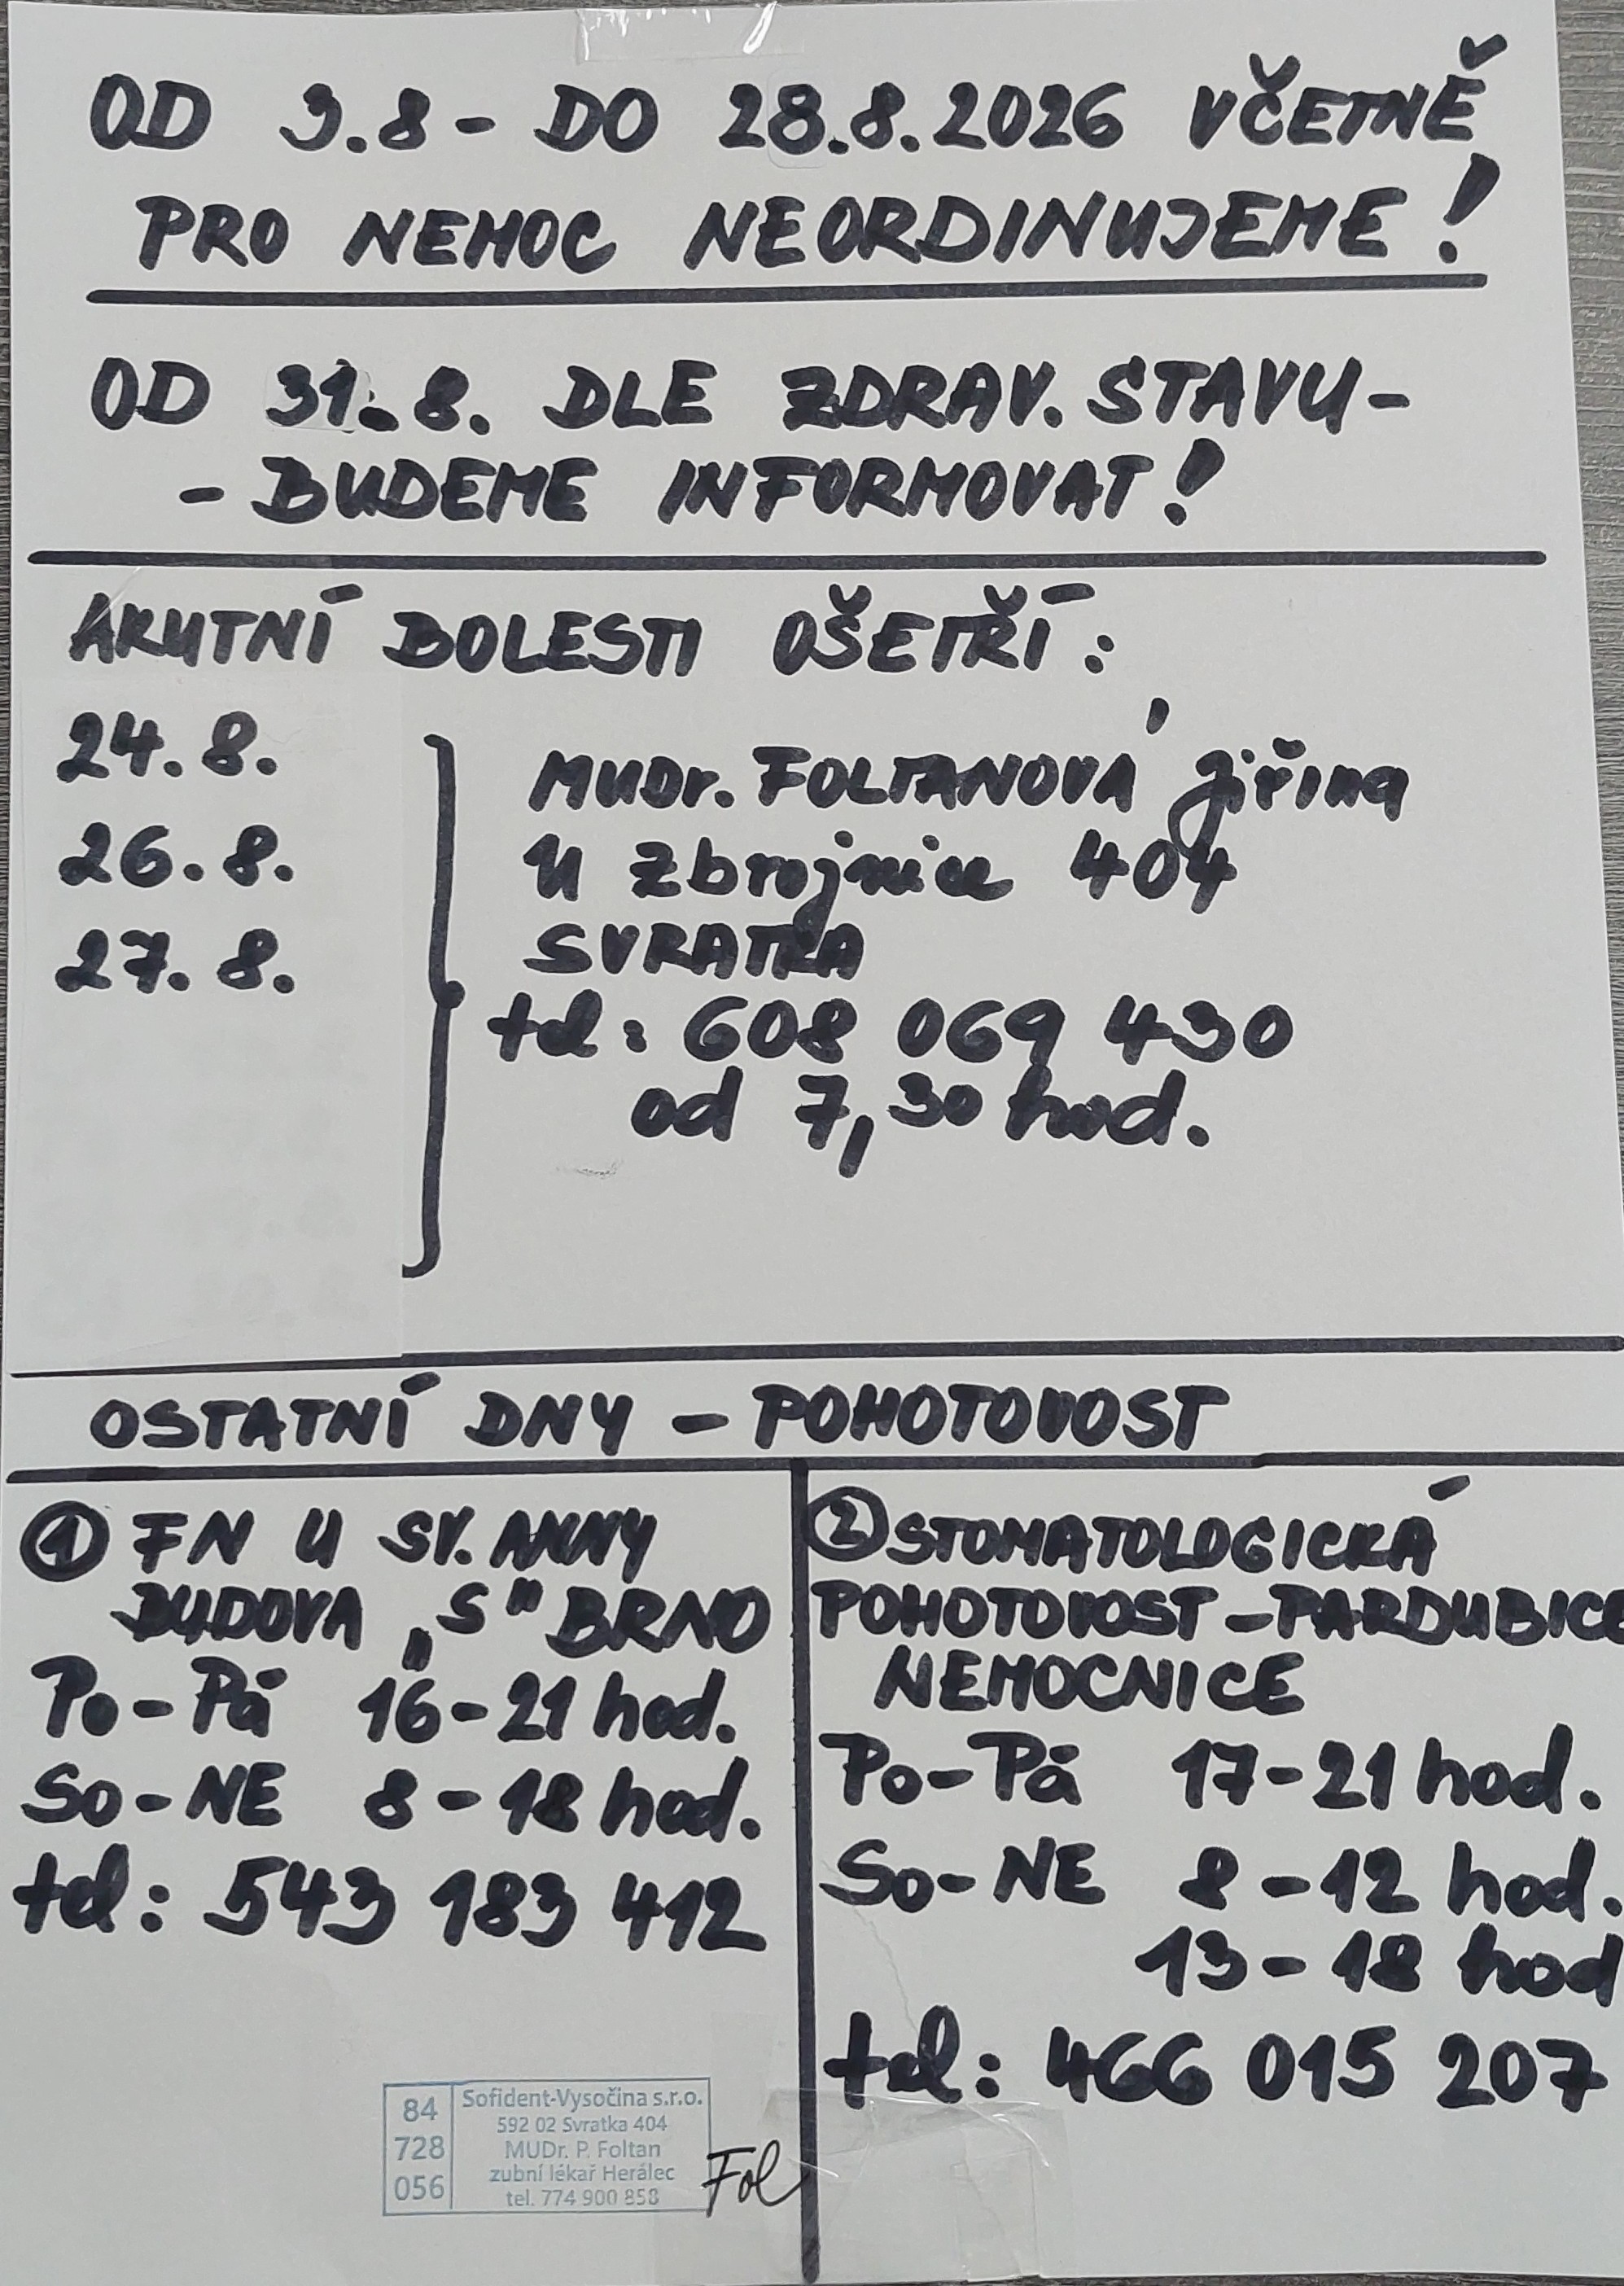 OD 3.8 - DO 28.8.2026 VČETNĚ
PRO NEMOC NEORDINUJEME!
OD 31.8. DLE ZDRAV. STAVU-
- BUDEME INFORMOVAT!
AKUTNÍ BOLESTI OŠETŘÍ:
24.8.
26.8.
27.8.
MUDr. FOLTANOVÁ Jiřina
U zbrojnice 404
SVRATKA
tel: 608 069 430
od 7,30 hod.
OSTATNÍ DNY - POHOTOVOST
① FN U SV. ANNY
BUDOVA „S" BRNO
Po-Pá 16-21 hod.
So-NE 8-18 hod.
tel: 543 183 412
② STOMATOLOGICKÁ
POHOTOVOST - PARDUBICE
NEMOCNICE
Po-Pá 17-21 hod.
So-NE 8-12 hod.
13-18 hod
tel: 466 015 207
84
728
056
Sofident-Vysočina s.r.o.
592 02 Svratka 404
MUDr. P. Foltan
zubní lékař Herálec
tel. 774 900 858
Fol